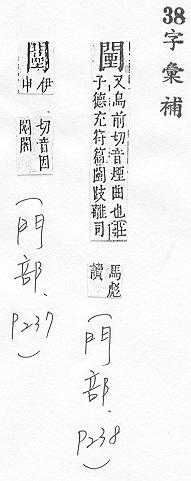 38字彙補
闉又烏前切音煙曲也莊
子德充符篇闉跂離司
馬彪
讀
(門部.P238)
闉伊
申
切音因
(門部.P237)